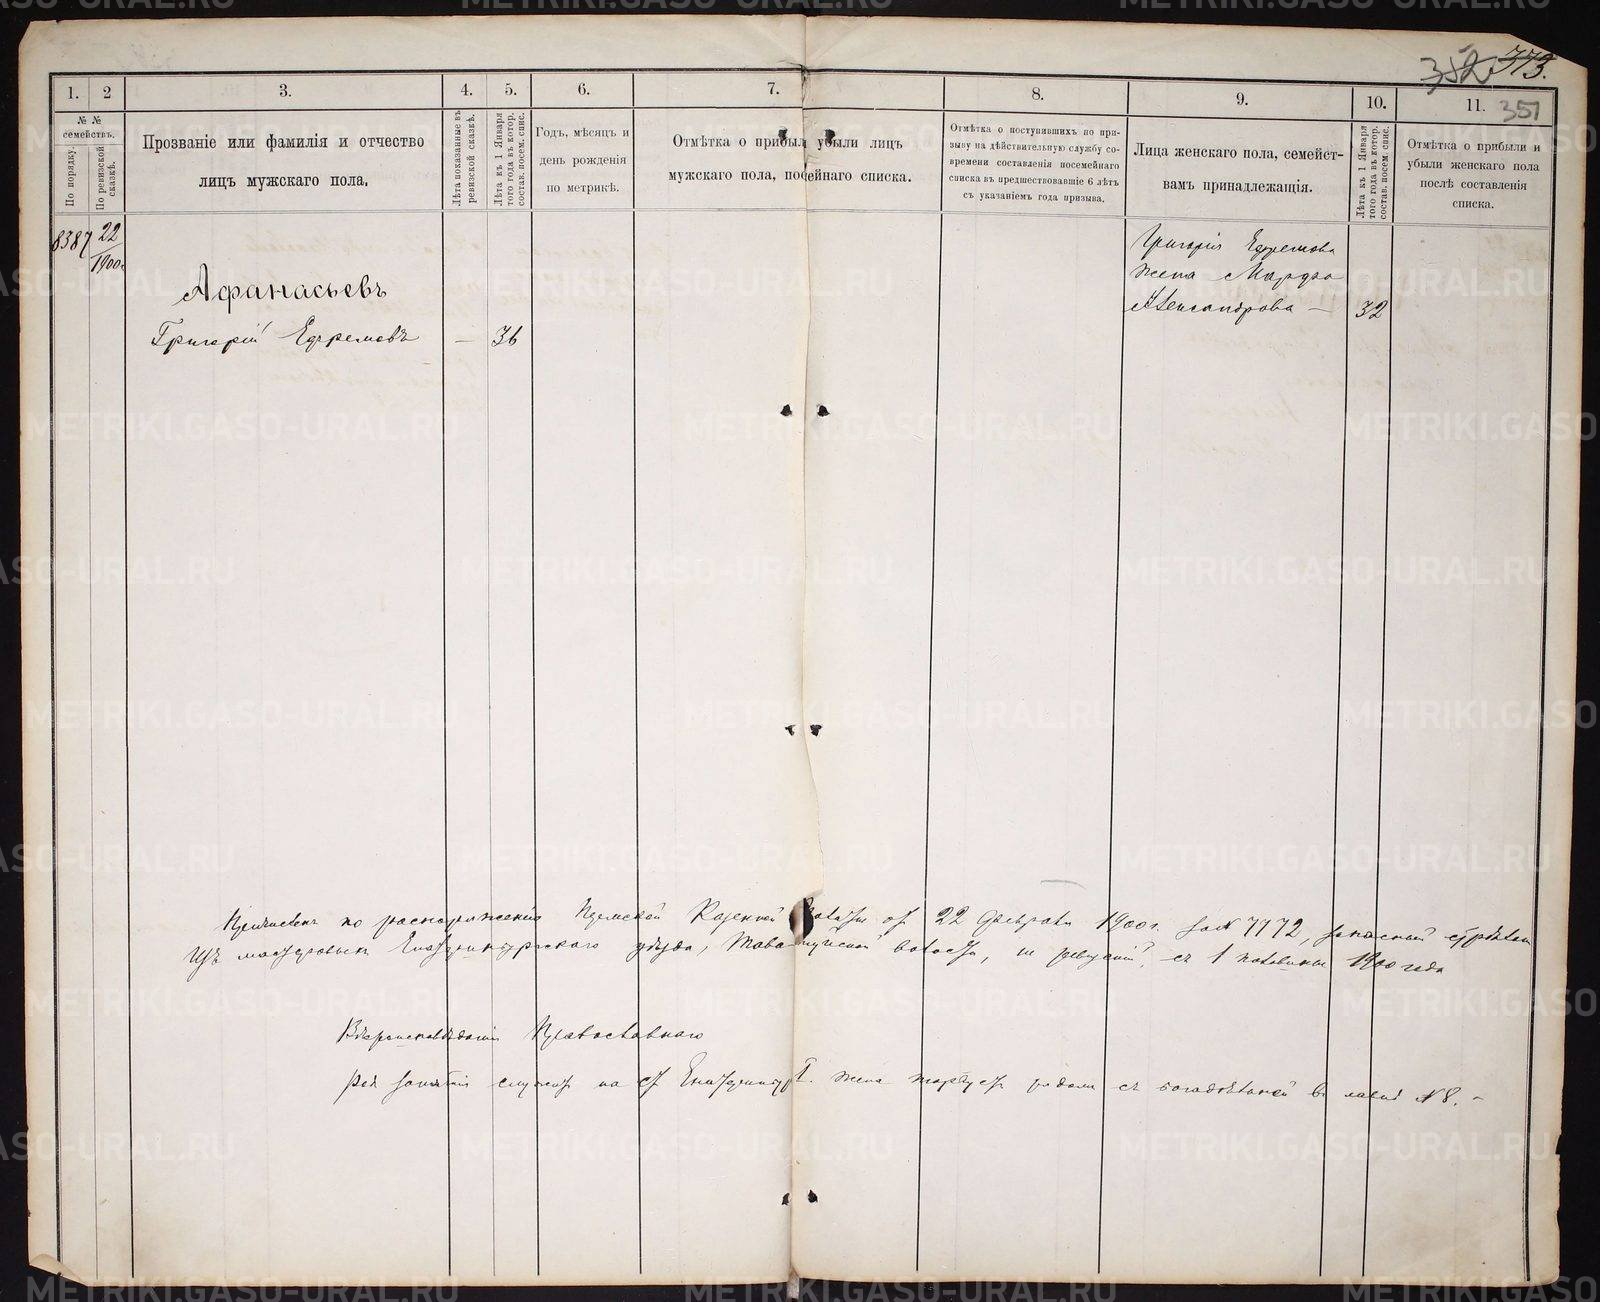 352 373.
1. 2 3. 4. 5. 6. 7. 8. 9. 10. 11. 351
№ №
семействъ.
По порядку.
По ревизской
сказкѣ.
Прозваніе или фамилія и отчество
лицъ мужскаго пола.
Лѣта показанные въ
ревизской сказкѣ.
Лѣта къ 1 Января
того года въ котор.
состав. посем. спис.
Годъ, мѣсяцъ и
день рожденія
по метрикѣ.
Отмѣтка о прибыл убыли лицъ
мужскаго пола, посейнаго списка.
Отмѣтка о поступившихъ по при-
зыву на дѣйствительную службу со-
времени составленія посемейнаго
списка въ предшествовавшіе 6 лѣтъ
съ указаніемъ года призыва.
Лица женскаго пола, семейст-
вамъ принадлежащія.
Лѣта къ 1 Января
того года въ котор.
состав. посем. спис.
Отмѣтка о прибыли и
убыли женскаго пола
послѣ составленія
списка.
8387 22
1900г.
Афанасьевъ
Григорій Ефремовъ — 36
Григорія Ефремова
жена Марфа
Александрова — 32
Причисленъ по распоряженію Пермской Казенной Палаты от 22 Февраля 1900г. за № 7172, запасный стрѣлок
Изъ мастеровыхъ Екатеринбургскаго уѣзда, волости, съ 1 половины 1900 года
Вѣроисповѣданія Православнаго
Род занятій служит на ст Екатеринбург I. жена торгует рядом съ богадѣльней въ лавкѣ № 8. –
METRIKI.GASO-URAL.RU